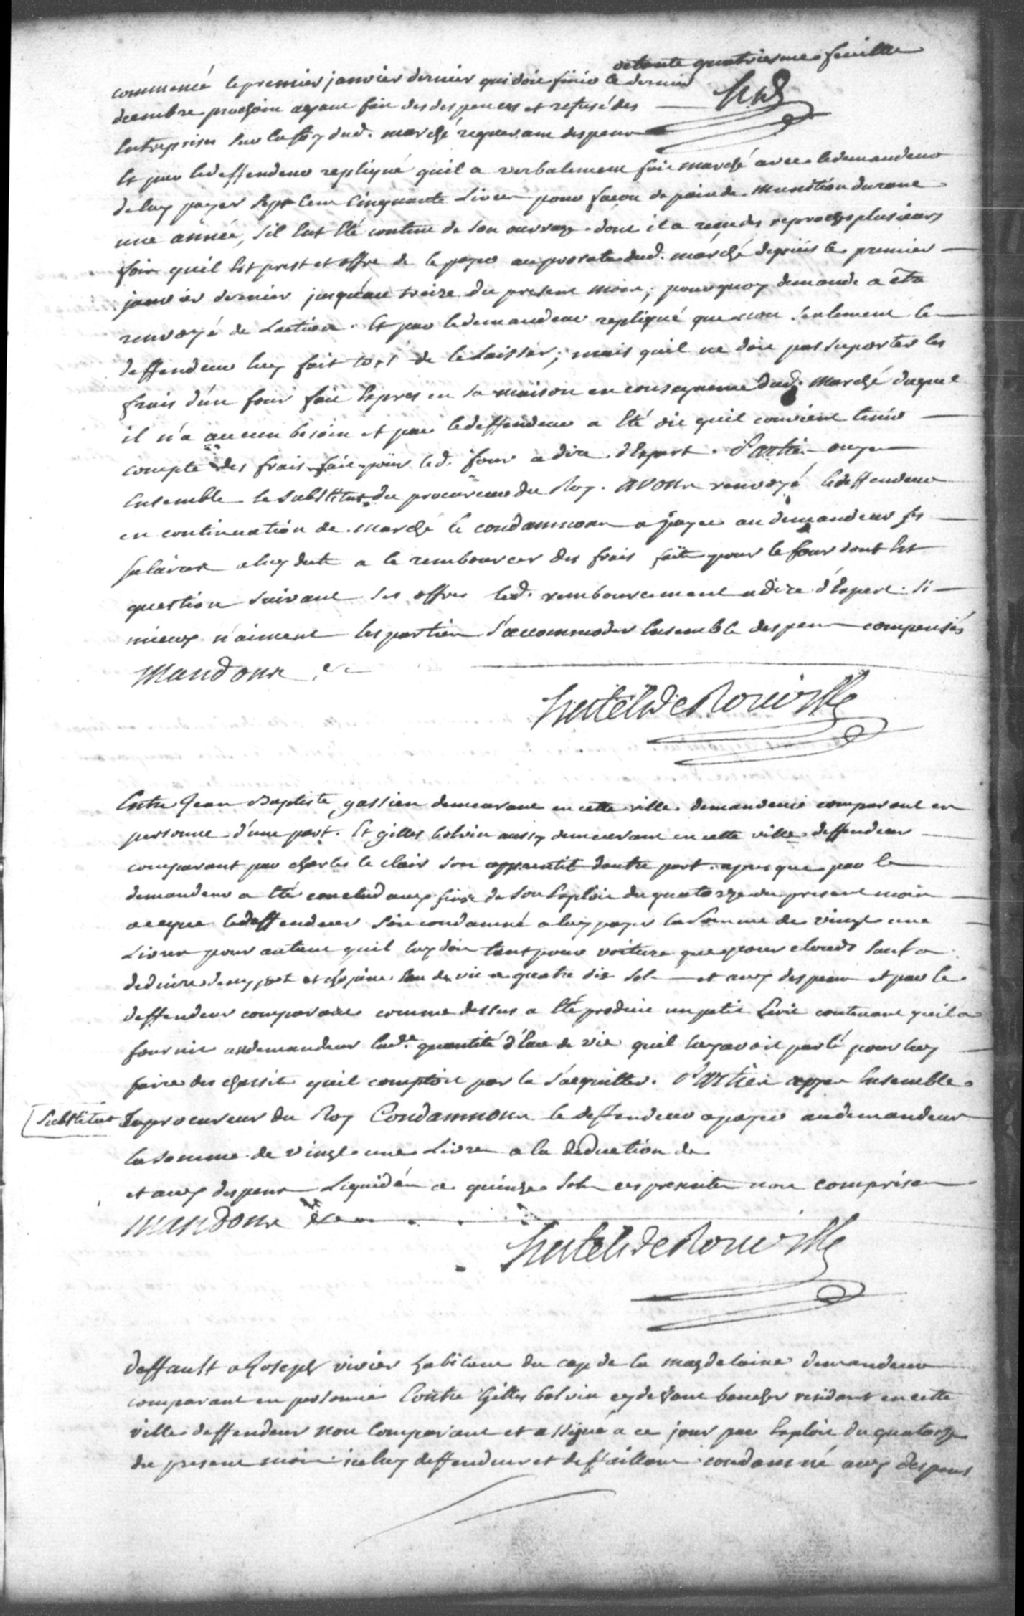 soixante quatriesme feuillet
commencé le premier janvier dernier qui doit finir le dernier
decembre prochain ayant fait des despences et refusé des
entreprises sur la foy dud. marché requerant despens
Et par le deffendeur repliqué qu'il a verbalement fait marché avec le demandeur
de luy payer sept cent cinquante Livres pour façon de pain de munition durant
une année, s'il eut été content de son ouvrage dont il a reçu des reproches plusieurs
fois qu'il est prest et offre de le payer au prorata dud. marché depuis le premier
janvier dernier jusqu'au treize du present mois; pourquoy demande a être
renvoyé de L'action. Et par le demandeur repliqué que non seulement le
deffendeur luy fait tort de le laisser; mais qu'il ne doit pas suporter les
frais d'un four fait exprès en sa maison en consequence dud. marché duquel
il n'a aucun besoin et par le deffendeur a été dit qu'il convient tenir
compte des frais fait pour led. four a dire d'Expert. Parties ouyes
Ensemble le substitut du procureur du Roy. avons renvoyé le deffendeur
en continuation de marché le condamnons a payer au demandeur ses
salaires a luy dut a le rembourcer des frais fait pour le four dont est
question suivant ses offres led. remboursement a dire d'Expert. si
mieux n'aiment les parties s'accommoder Ensemble despens compensés
Mandons &c
Hertel de Rouville
Entre Jean Baptiste gastien demeurant en cette ville demandeur comparant en
personne d'une part. Et gilles bolvin aussy demeurant en cette ville deffendeur
comparant par charles le clair son apprentit d'autre part. apres que par le
demandeur a été conclud aux fins de son Exploit du quatorze du present mois
a ce que le deffendeur soit condamné a luy payer la somme de vingt une
Livres pour autant qu'il luy doit tant pour voiture que pour clouds sauf a
deduire deux pot et chopine Eau de vie a quatre dix sols et aux despens et par le
deffendeur comparant comme dessus a été produit un petit Livre contenant qu'il a
fournit au demandeur lad.e quantité d'Eau de vie qu'il luy avoit parlé pour luy
faire des chassit qu'il comptoit par la s'acquitter. Parties ouyes Ensemble
substitut du procureur du Roy Condamnons le deffendeur a payer au demandeur
la somme de vingt une Livre a la deduction de
et aux despens Liquidés a quinze sols ces presentes non comprises
Mandons &c
Hertel de Rouville
deffault a Joseph vivier habitant du cap de la magdelaine demandeur
comparant en personne Contre Gilles bolvin cy devant boucher residant en cette
ville deffendeur non Comparant et assigné a ce jour par Exploit du quatorze
du present mois iceluy deffendeur et deffaillant condamné aux despens